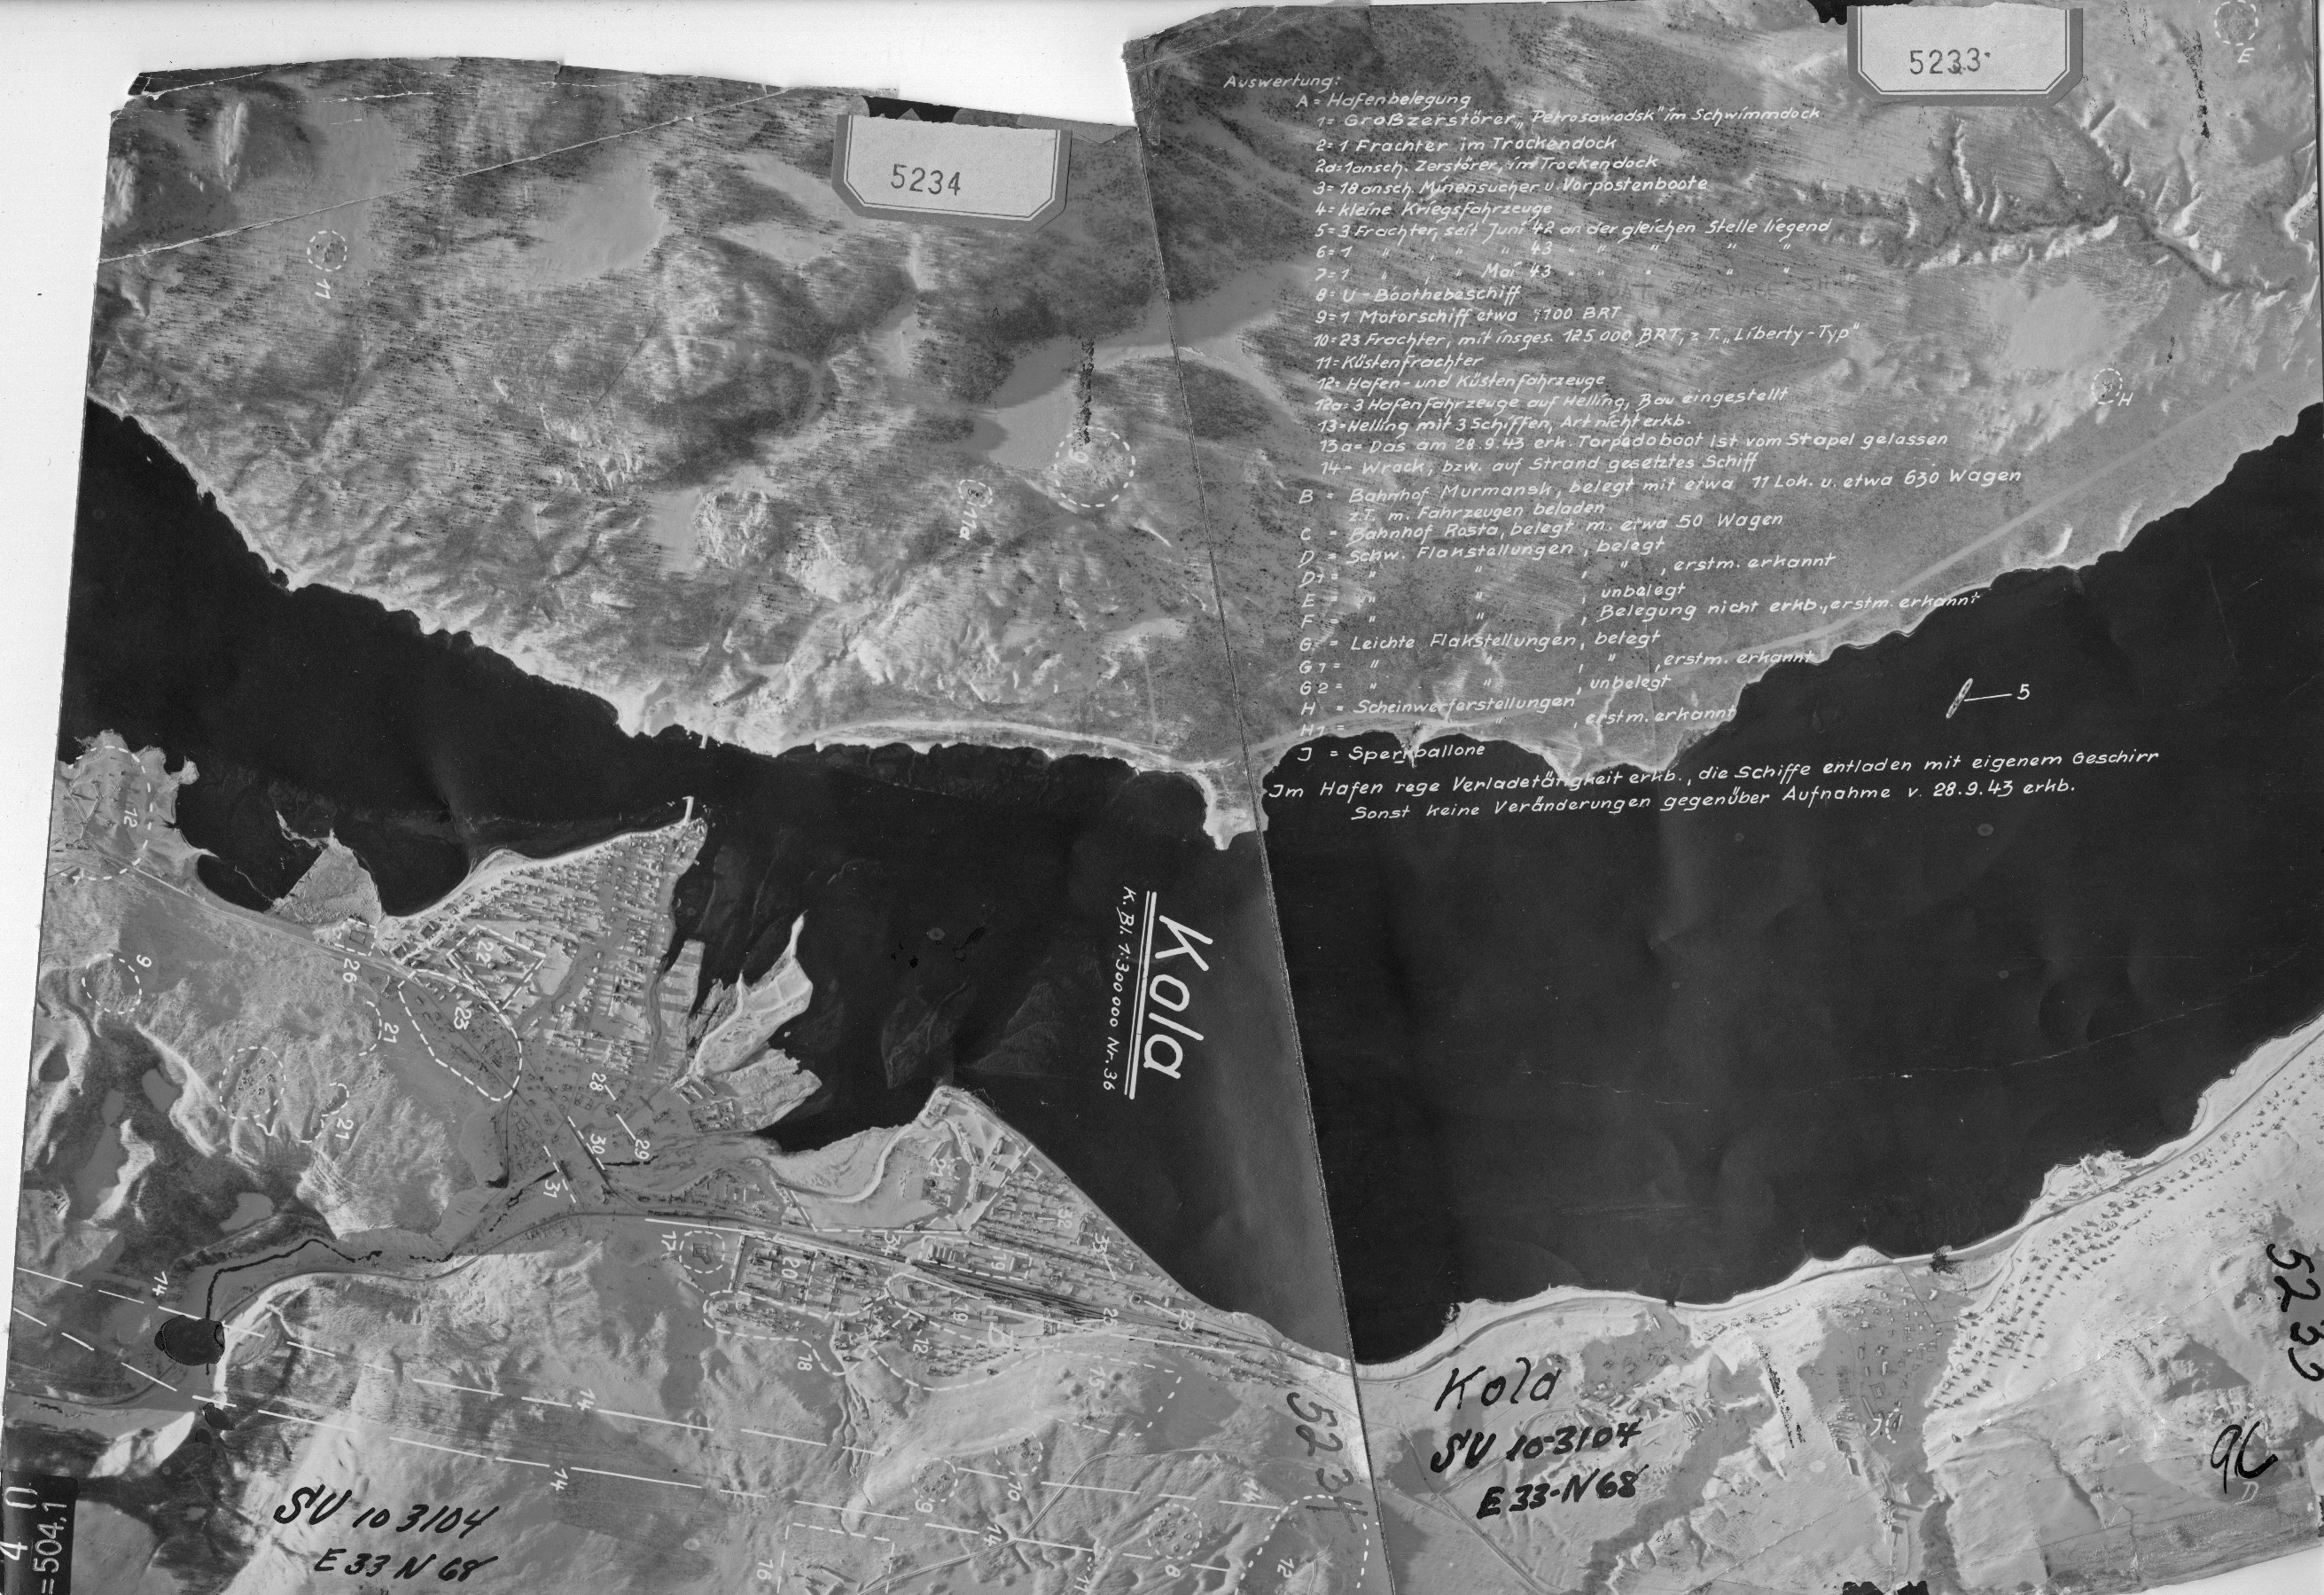 5234
5233
E
Auswertung:
A = Hafenbelegung
1= Großzerstörer „Petrosawodsk" im Schwimmdock
2= 1 Frachter im Trockendock
2a= 1 ansch. Zerstörer, im Trockendock
3= 18 ansch. Minensucher u. Vorpostenboote
4= kleine Kriegsfahrzeuge
5= 3 Frachter, seit Juni 42 an der gleichen Stelle liegend
6= 1 " " " 43 " " " " "
7= 1 " " " Mai 43 " " " " "
8= U-Boothebeschiff
9= 1 Motorschiff etwa 100 BRT
10= 23 Frachter, mit insges. 125 000 BRT, z.T. „Liberty-Typ"
11= Küstenfrachter
12= Hafen- und Küstenfahrzeuge
12a= 3 Hafenfahrzeuge auf Helling, Bau eingestellt
13= Helling mit 3 Schiffen, Art nicht erkb.
13a= Das am 28.9.43 erk. Torpedoboot ist vom Stapel gelassen
14- Wrack, bzw. auf Strand gesetztes Schiff
B = Bahnhof Murmansk, belegt mit etwa 11 Lok. u. etwa 630 Wagen
z.T. m. Fahrzeugen beladen
C = Bahnhof Rosta, belegt m. etwa 50 Wagen
D = Schw. Flakstellungen, belegt
D1 = " " , " , erstm. erkannt
E = " " , unbelegt
F = " " , Belegung nicht erkb., erstm. erkannt
G = Leichte Flakstellungen, belegt
G1 = " " , " , erstm. erkannt
G2 = " " , unbelegt
H = Scheinwerferstellungen
H1 = " " , erstm. erkannt
J = Sperrballone
Im Hafen rege Verladetätigkeit erkb., die Schiffe entladen mit eigenem Geschirr
Sonst keine Veränderungen gegenüber Aufnahme v. 28.9.43 erkb.
H
11
11a
5
12
Kola
K. Bl. 1:300 000 Nr. 36
22
26
9
21
23
21
28
29
30
31
27
32
33
34
19
17
20
19
12
22
25
18
15
14
14
14
14
14
9
10
8
11
12
16
5234
5233
Kola
SU 10-3104
E 33-N68
SU 10 3104
E 33 N 68
D
4
=504,1